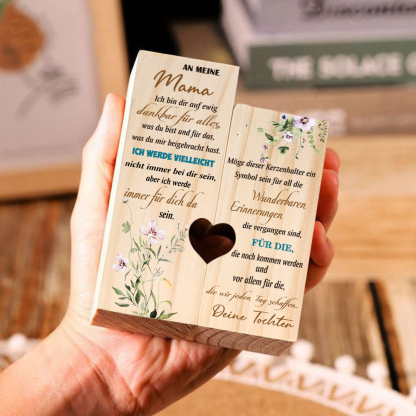 AN MEINE
Mama
Ich bin dir auf ewig
dankbar für alles,
was du bist und für das,
was du mir beigebracht hast.
ICH WERDE VIELLEICHT
nicht immer bei dir sein,
aber ich werde
immer für dich da
sein.
Möge dieser Kerzenhalter ein
Symbol sein für all die
Wunderbaren
Erinnerungen
die vergangen sind,
FÜR DIE,
die noch kommen werden
und
vor allem für die,
die wir jeden Tag schaffen.
Deine Tochten
THE SOLACE